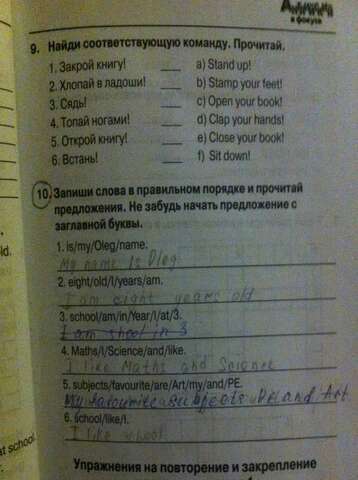 в фокусе
9. Найди соответствующую команду. Прочитай.
1. Закрой книгу! ___ a) Stand up!
2. Хлопай в ладоши! ___ b) Stamp your feet!
3. Сядь! ___ c) Open your book!
4. Топай ногами! ___ d) Clap your hands!
5. Открой книгу! ___ e) Close your book!
6. Встань! ___ f) Sit down!
10. Запиши слова в правильном порядке и прочитай
предложения. Не забудь начать предложение с
заглавной буквы.
1. is/my/Oleg/name.
My name is Oleg
2. eight/old/I/years/am.
I am eight years old
3. school/am/in/Year/I/at/3.
I am shool in 3
4. Maths/I/Science/and/like.
I like Maths and Science
5. subjects/favourite/are/Art/my/and/PE.
My favourite subjects and Art.
6. school/like/I.
I like school
Упражнения на повторение и закрепление
ld.
at school.